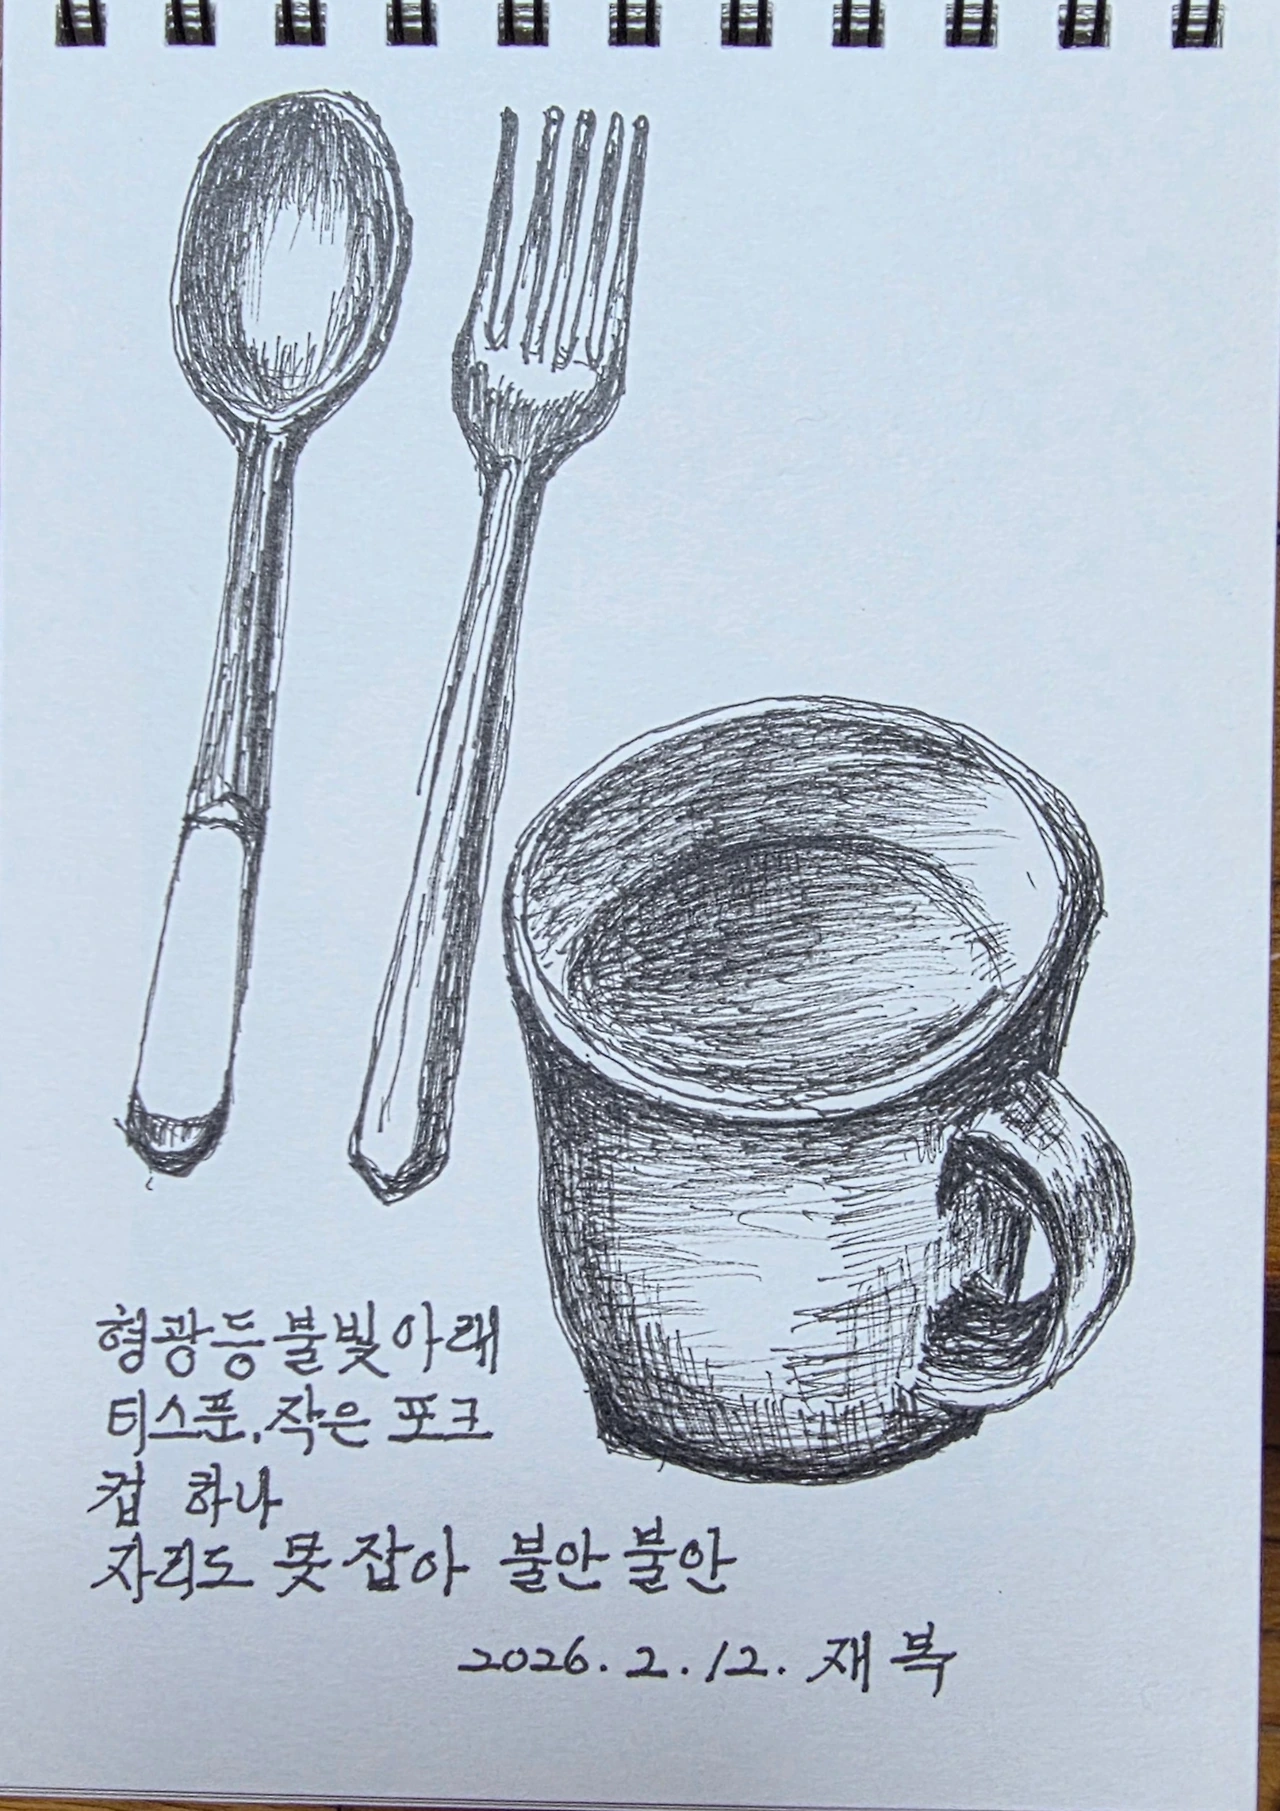 형광등 불빛 아래
티스푼, 작은 포크
컵 하나
자리도 못 잡아 불안불안
2026. 2. 12. 재복